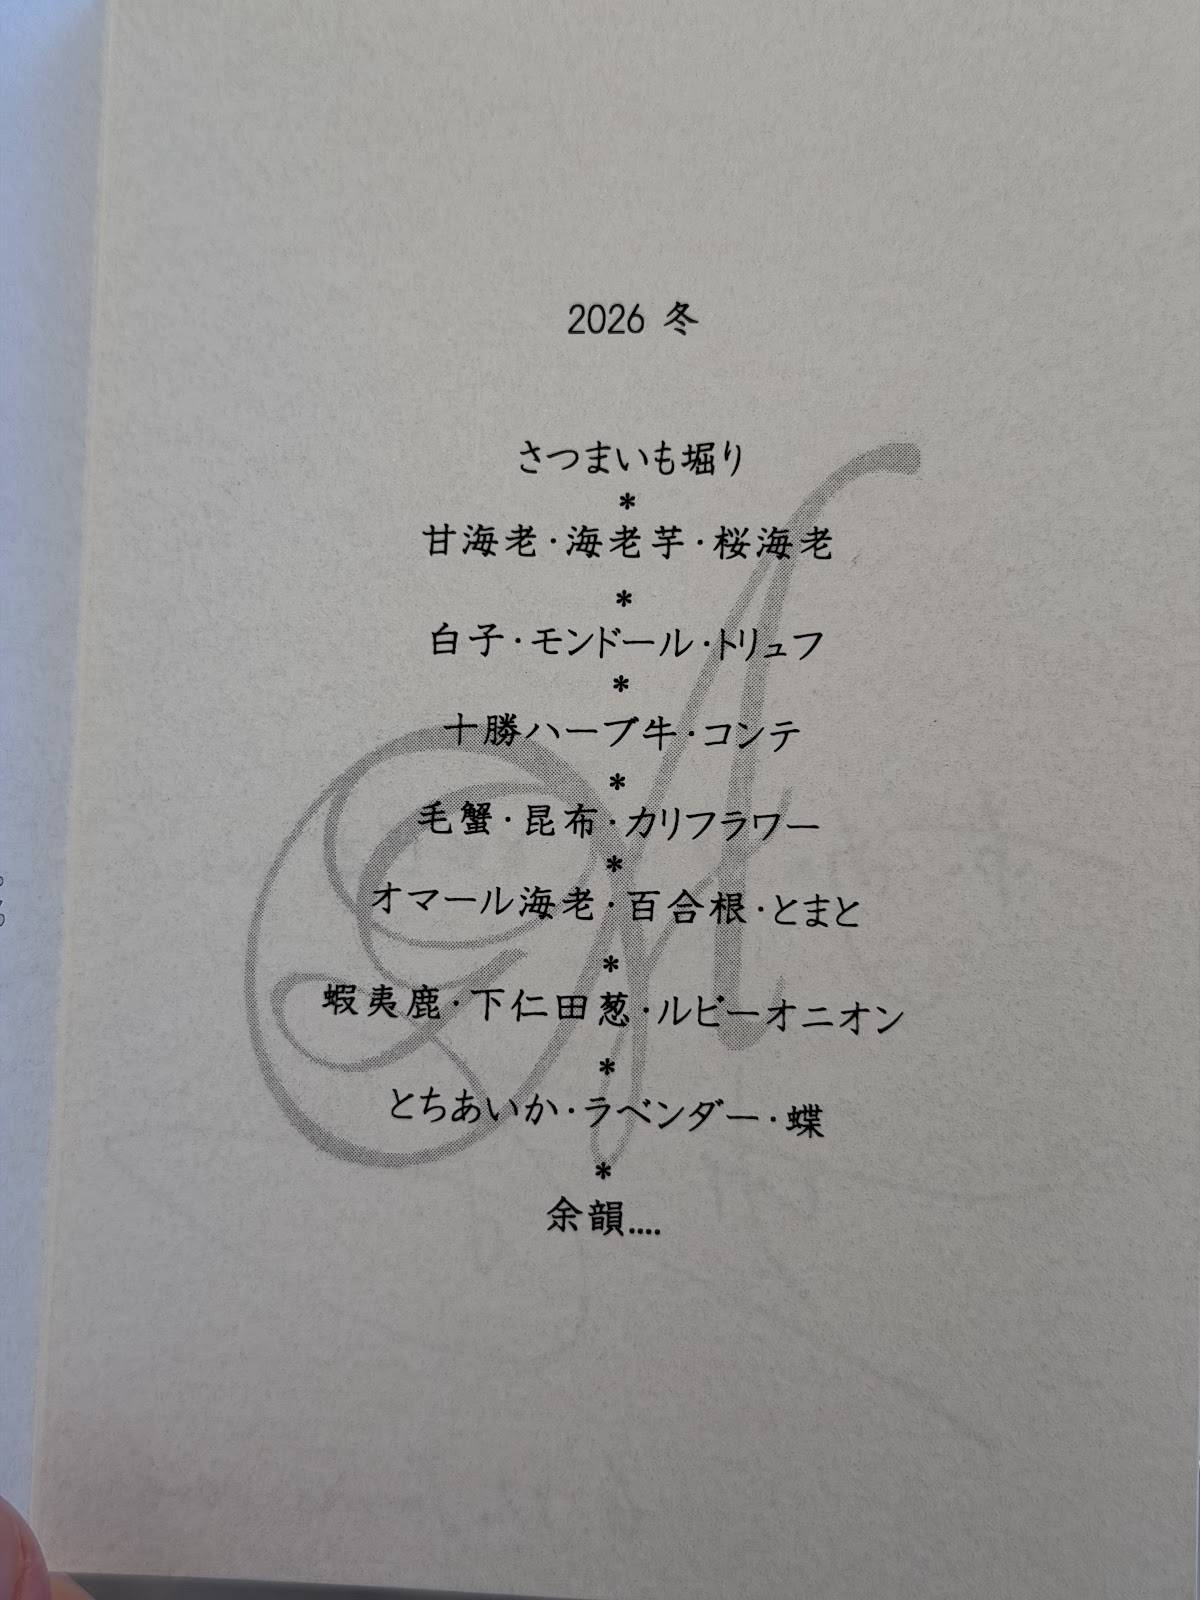 2026 冬
さつまいも堀り
*
甘海老・海老芋・桜海老
*
白子・モンドール・トリュフ
*
十勝ハーブ牛・コンテ
*
毛蟹・昆布・カリフラワー
*
オマール海老・百合根・とまと
*
蝦夷鹿・下仁田葱・ルビーオニオン
*
とちあいか・ラベンダー・蝶
*
余韻....